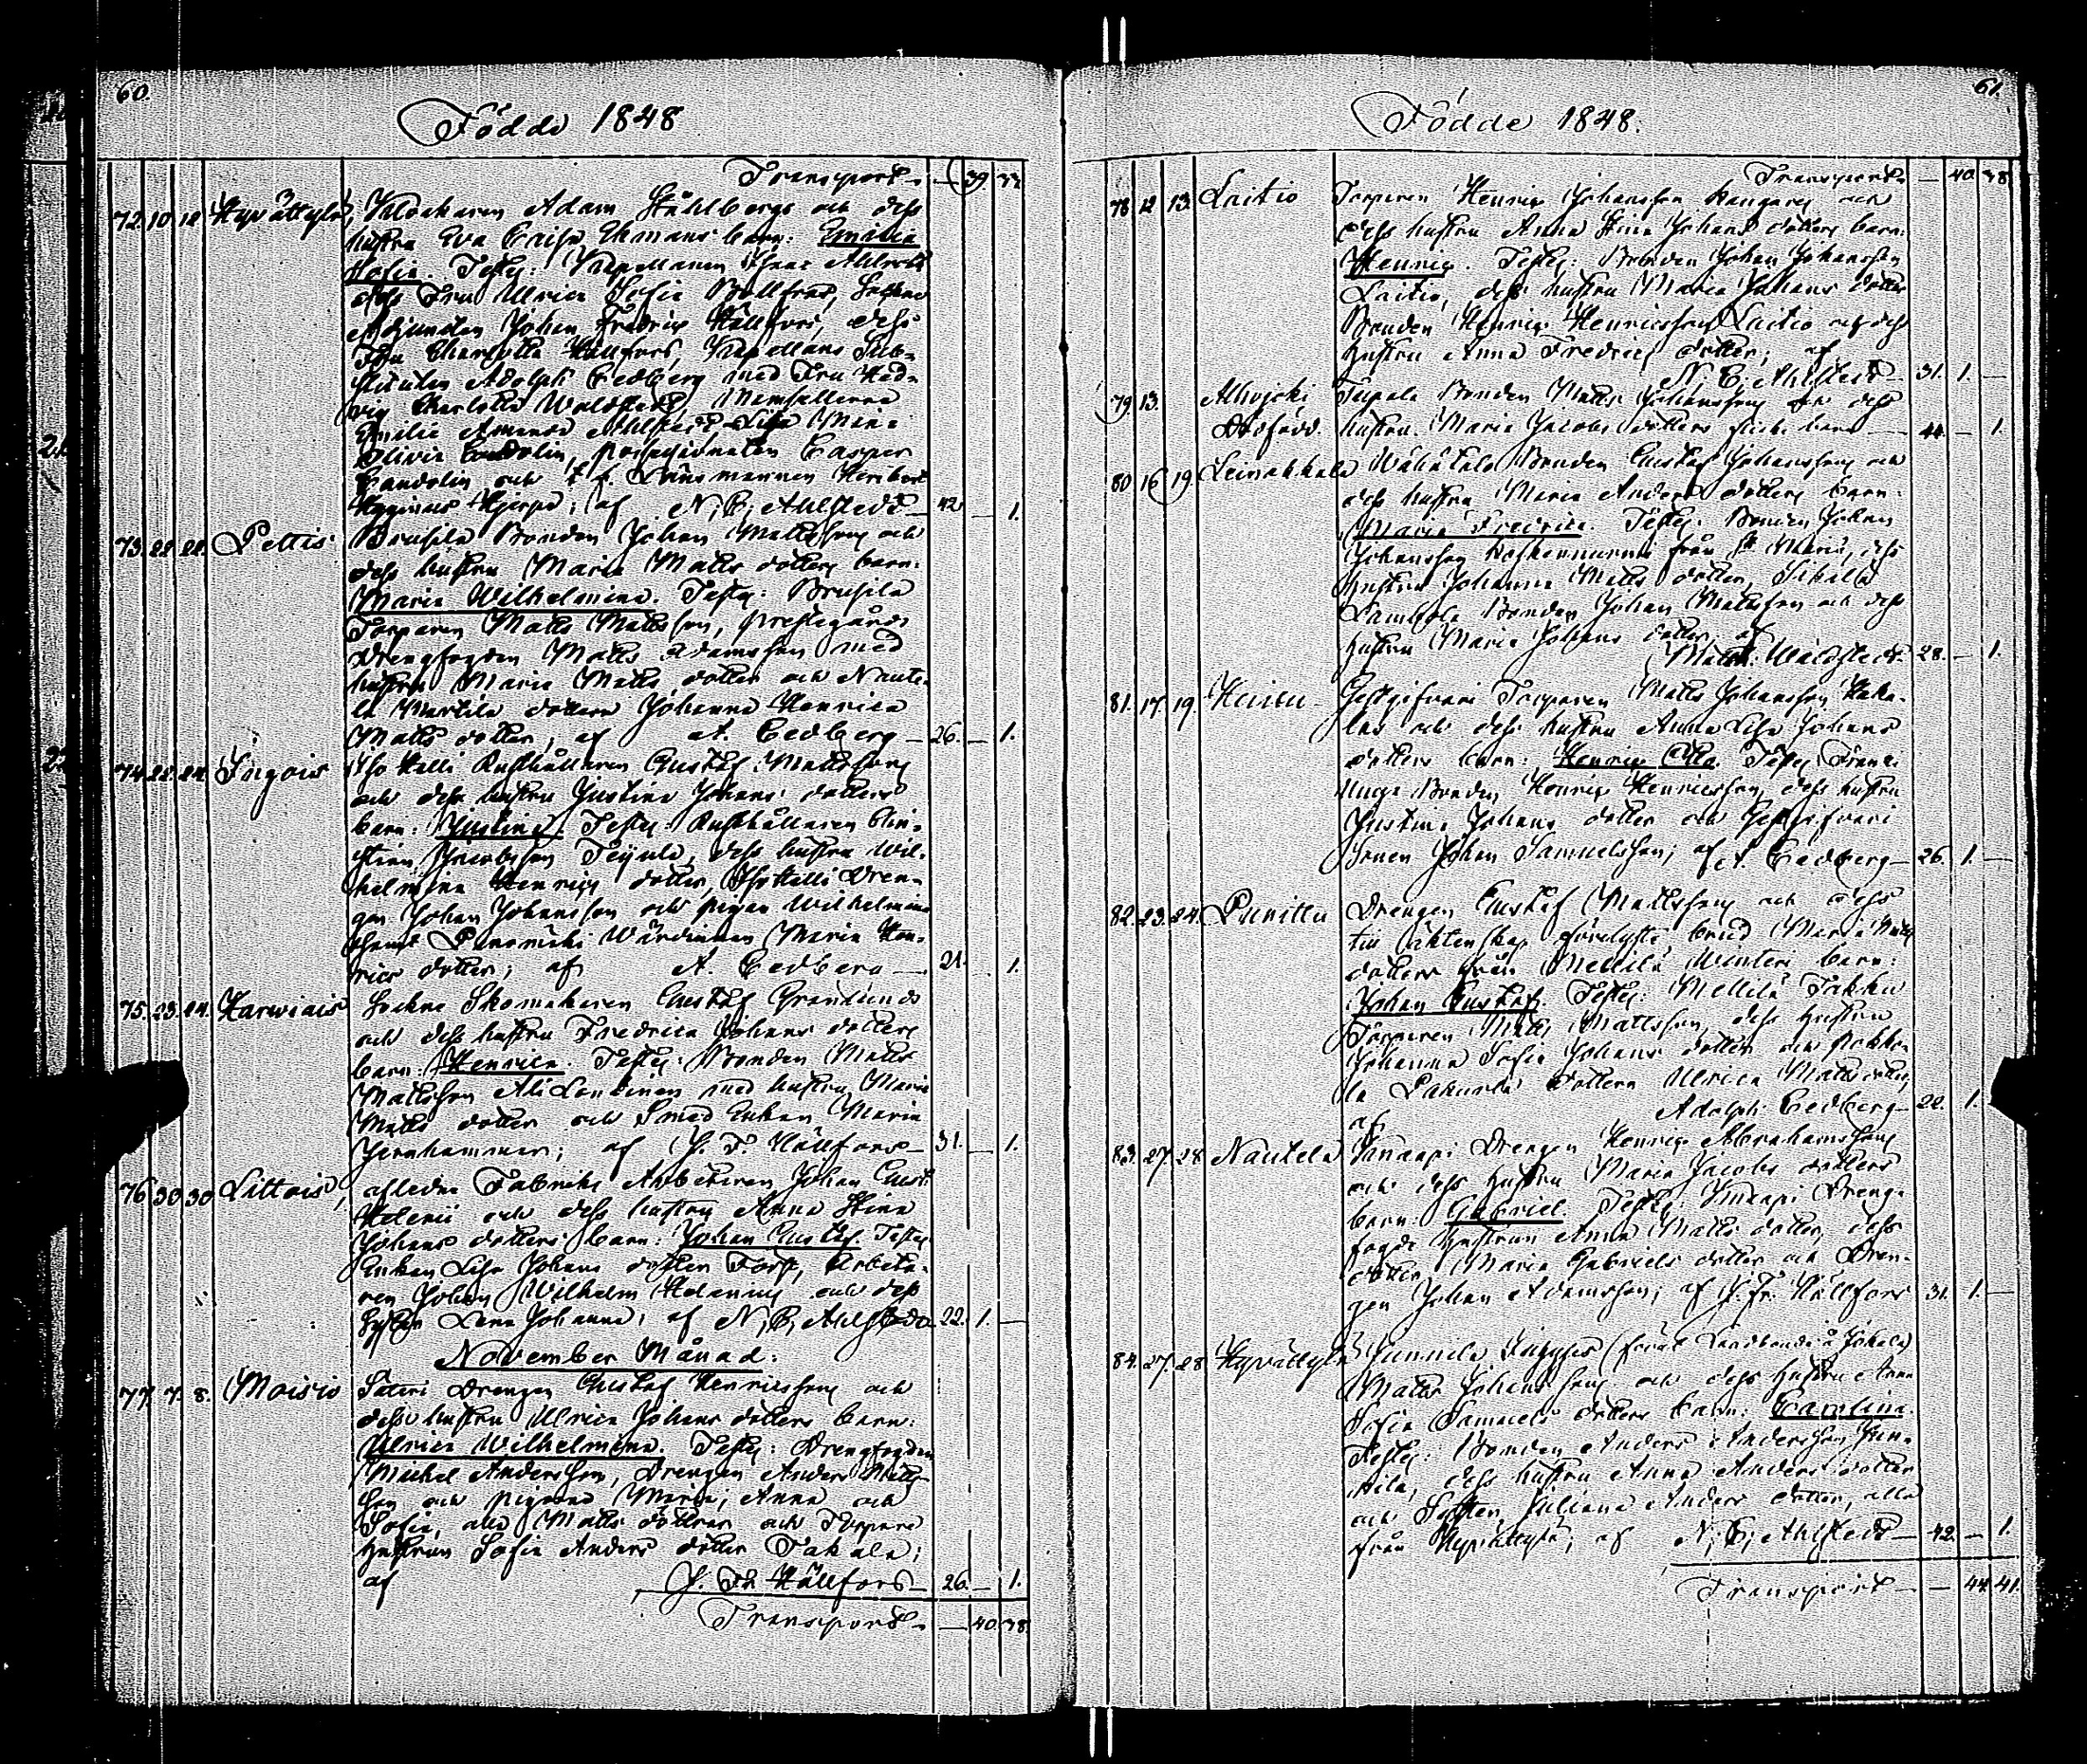 60.
Födde 1848
Transport — 39. 33.
72. 10. 12. Hyvättylä, Klockaren Adam Ståhlbergs och dess
hustru Eva Caisa Ekmans barn: Emilia
Sofia. Testes: Kapellanen Ahlstedt
dess Fru Ulrica Sofia
Adjuncten Johan Fredric Hällfors, dess
Fru Charlotta Hällfors, Kapellans Sub-
stituten Adolph Cedberg med Fru Hed-
vig Charlotta Waldstedt, Mamsellerna
Emilie Amanda Ahlstedt, Lisa Mina
Olivia Candolin, possessionaten Casper
Candolin och t. f. Länsmannen
Hyginus; af N. C. Ahlstedt — 42. — 1.
73. 22. 22. Pettis Brusila Bonden Johan Mattsson och
dess hustru Maria Matts dotters barn:
Maria Wilhelmina. Testes: Brusila
Torparen Matts Mattsson, prestegårds
Drengfogden Matts Adamsson med
hustru Maria Matts dotter och Naute-
la Martila dottern Johanna Henrica
Matts dotter; af A. Cedberg — 26. — 1.
74. 22. 24. Ingois Iso Kalli Rusthållaren Gustaf Mattssons
och dess hustru Justina Johans dotters
barn: Justina. Testes: Rusthållaren Chri-
stian Jacobsson Teijula, dess hustru Wil-
helmina Henrics dotter, Iso Kalli Dren-
gen Johan Johansson och pigan Wilhelmina
Wärdinnan Maria Hen-
rics dotter; af A. Cedberg — 21. — 1.
75. 23. 24. Karviais Sockne Skomakaren Gustaf Granlunds
och dess hustru Fredrica Johans dotters
barn: Henrica. Testes: Bonden Matts
Mattsson Ali Lontinen med hustru Maria
Matts dotter och Smed Enkan Maria
Jernhammar; af J. F. Hällfors — 31. — 1.
76. 30. 30. Littois, afledne Fabriks Arbetaren Johan Gust.
Helenii och dess hustru Anna Stina
Johans dotters barn: Johan Gustaf. Testes:
Enkan Lisa Johans dotter Forss, Arbeta-
ren Johan Wilhelm Helenius och dess
Syster Lena Johanna; af N. C. Ahlstedt — 22. 1. —
November Månad.
77. 7. 8. Moisio Säteri Drengen Gustaf Henricssons och
dess hustru Ulrica Johans dotters barn:
Ulrica Wilhelmina. Testes: Drengfogden
Michel Andersson, Drengen Anders Matts-
son och pigorna Maria, Anna och
Sofia, alla Matts döttrar och Torpare
hustrun Sofia Anders dotter Takala;
af J. Fr. Hällfors — 26. — 1.
Transport — 40. 38.
61.
Födde 1848.
Transport — 40. 38.
78. 12. 13. Laitio Torparen Henric Johansson och
dess hustru Anna Stina Johans dotters barn:
Henric. Testes: Bonden Johan Johansson
Laitio, dess hustru Maria Johans dotter
Bonden Henric Henricsson Laitio och dess
hustru Anna Fredrics dotter; af
N. C. Ahlstedt — 31. 1. —
79. 13. Alhojoki Tupala Bonden Matts Johanssons och dess
Dödfödd. hustru Maria Jacobs dotters flick barn — 44. — 1.
80. 16. 19. Leinakkala Wähätalo Bonden Gustaf Johanssons och
dess hustru Maria Anders dotters barn:
Maria Fredrica. Testes: Bonden Johan
Johansson från St Marie, dess
hustru Johanna Matts dotter,
Lambola Bonden Johan Mattsson och dess
hustru Maria Johans dotter; af
Waldstedt — 28. — 1.
81. 17. 19. Keisu Gestgifveri Torparen Matts Johansson Haka-
las och dess hustru Anna Lisa Johans
dotters barn: Henric Otto. Testes:
Bonden Henric Henricsson, dess hustru
Justina Johans dotter och Gestgifveri
Sonen Johan Samuelsson; af A. Cedberg — 26. 1. —
82. 23. 24. Punittu Drengen Gustaf Mattssons och dess
till äktenskap förelyste brud Maria Matts
dotters från Mellilä Winteri barn:
Johan Gustaf. Testes: Mellilä Takku
Torparen Matts Mattsson, dess hustru
Johanna Sofia Johans dotter och Pokko-
la dottern Ulrica Matts dotter,
af Adolph Cedberg — 22. 1. —
83. 27. 28. Nautela Knaapi Drengen Henric Abrahamssons
och dess hustru Maria Jacobs dotters
barn: Gabriel. Testes: Knaapi Dreng-
fogde hustrun Anna Matts dotter, dess
dotter Maria Gabriels dotter och Dren-
gen Johan Adamsson; af J. Fr. Hällfors — 31. 1. —
84. 27. 28. Hyvättylä Junnila Inhyses (förut Landbonde å Jokela)
Matts Johanssons och dess hustru Anna
Sofia Samuels dotters barn: Carolina.
Testes: Bonden Anders Andersson Jun-
nila, dess hustru Anna Anders dotter
och Systern Juliana Anders dotter, alla
från Hyvättylä; af N. C. Ahlstedt — 42. — 1.
Transport — 44. 41.